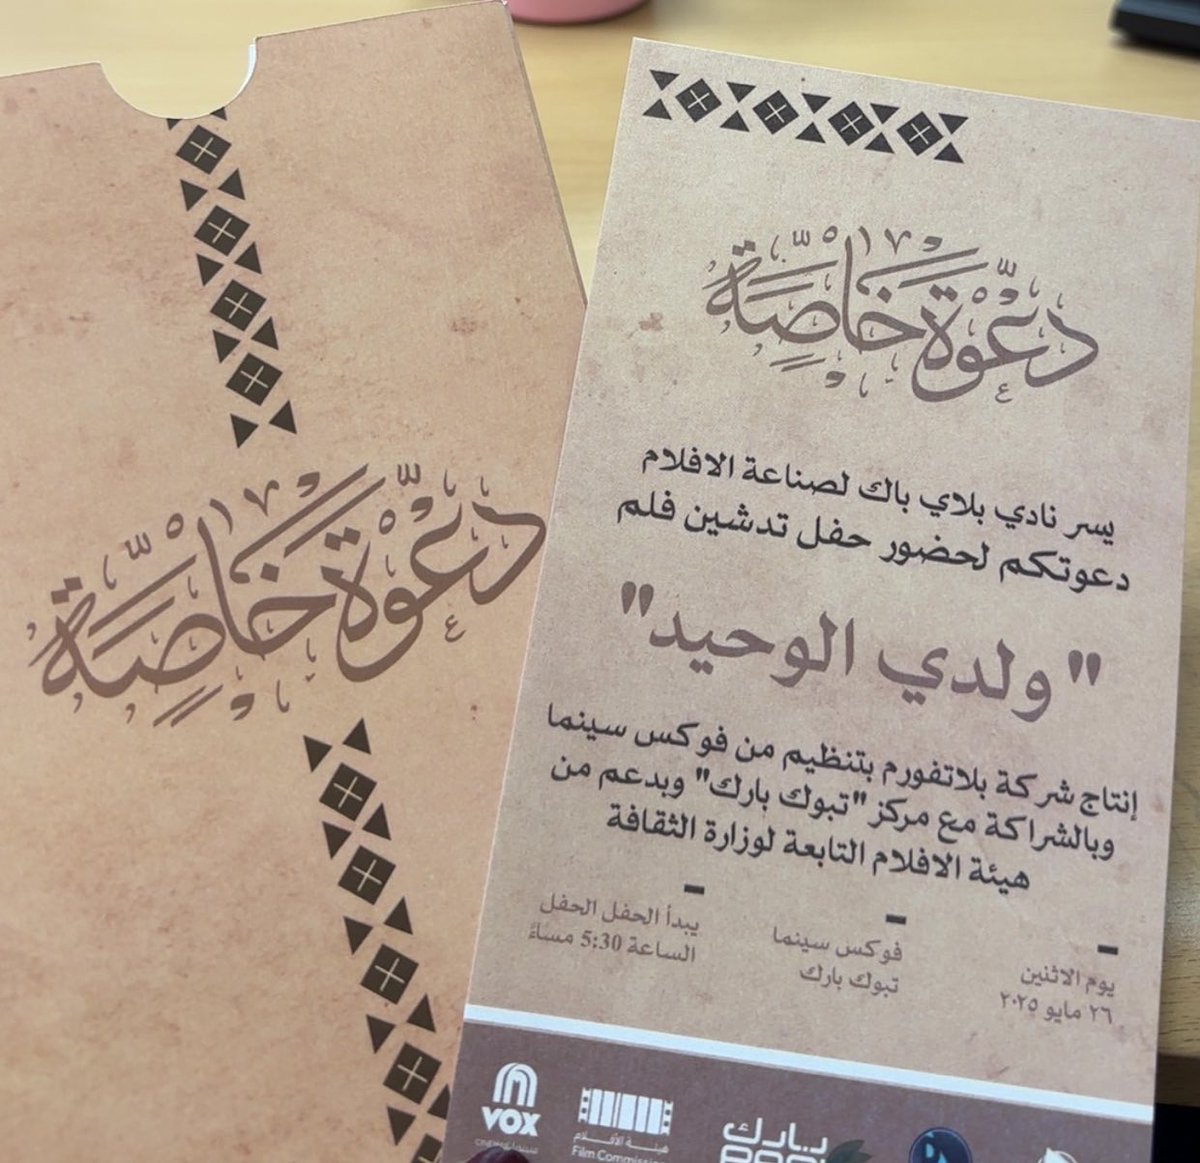 دعوة خاصة
دعوة خاصة
يسر نادي بلاي باك لصناعة الافلام
دعوتكم لحضور حفل تدشين فلم
"ولدي الوحيد"
إنتاج شركة بلاتفورم بتنظيم من فوكس سينما
وبالشراكة مع مركز "تبوك بارك" وبدعم من
هيئة الافلام التابعة لوزارة الثقافة
يوم الاثنين
٢٦ مايو ٢٠٢٥
فوكس سينما
تبوك بارك
يبدأ الحفل الحفل
الساعة 5:30 مساءً
VOX
هيئة الأفلام
Film Commission
بارك